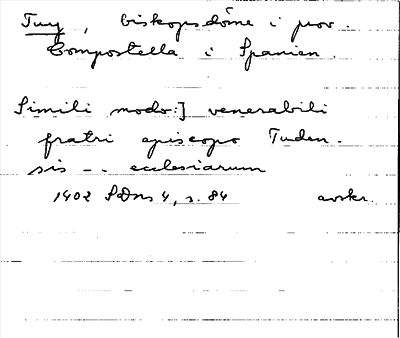 Tuy, biskopsdöme i prov.
Compostella i Spanien.
Simili modo:] venerabili
fratri episcopo Tuden-
sis -. ecclesiarum
1402 SDns 4, s. 84 avskr.